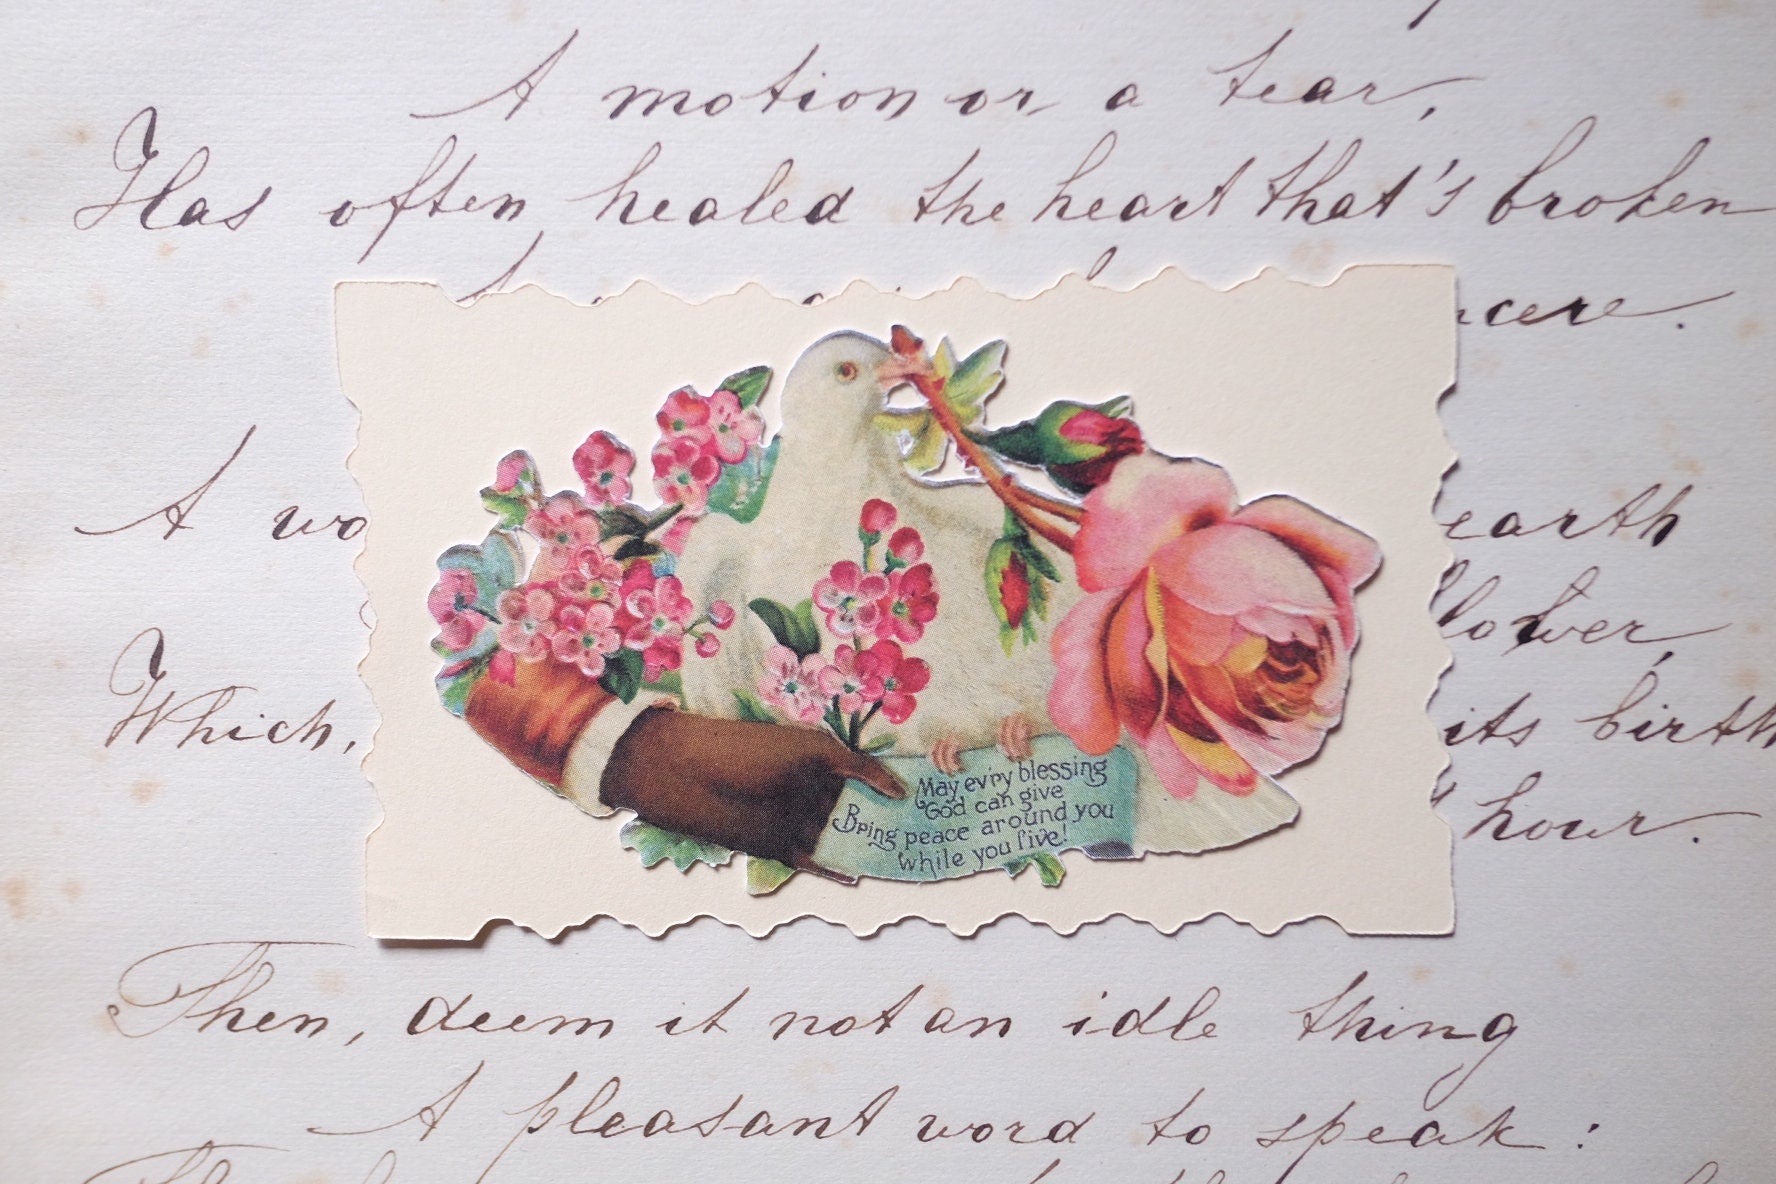 A motion or a tear,
Has often healed the heart that's broken
ncere.
A wo
earth
lower,
Which,
its birth
hour.
May ev'ry blessing
God can give
Bring peace around you
while you live!
Then, deem it not an idle thing
A pleasant word to speak: